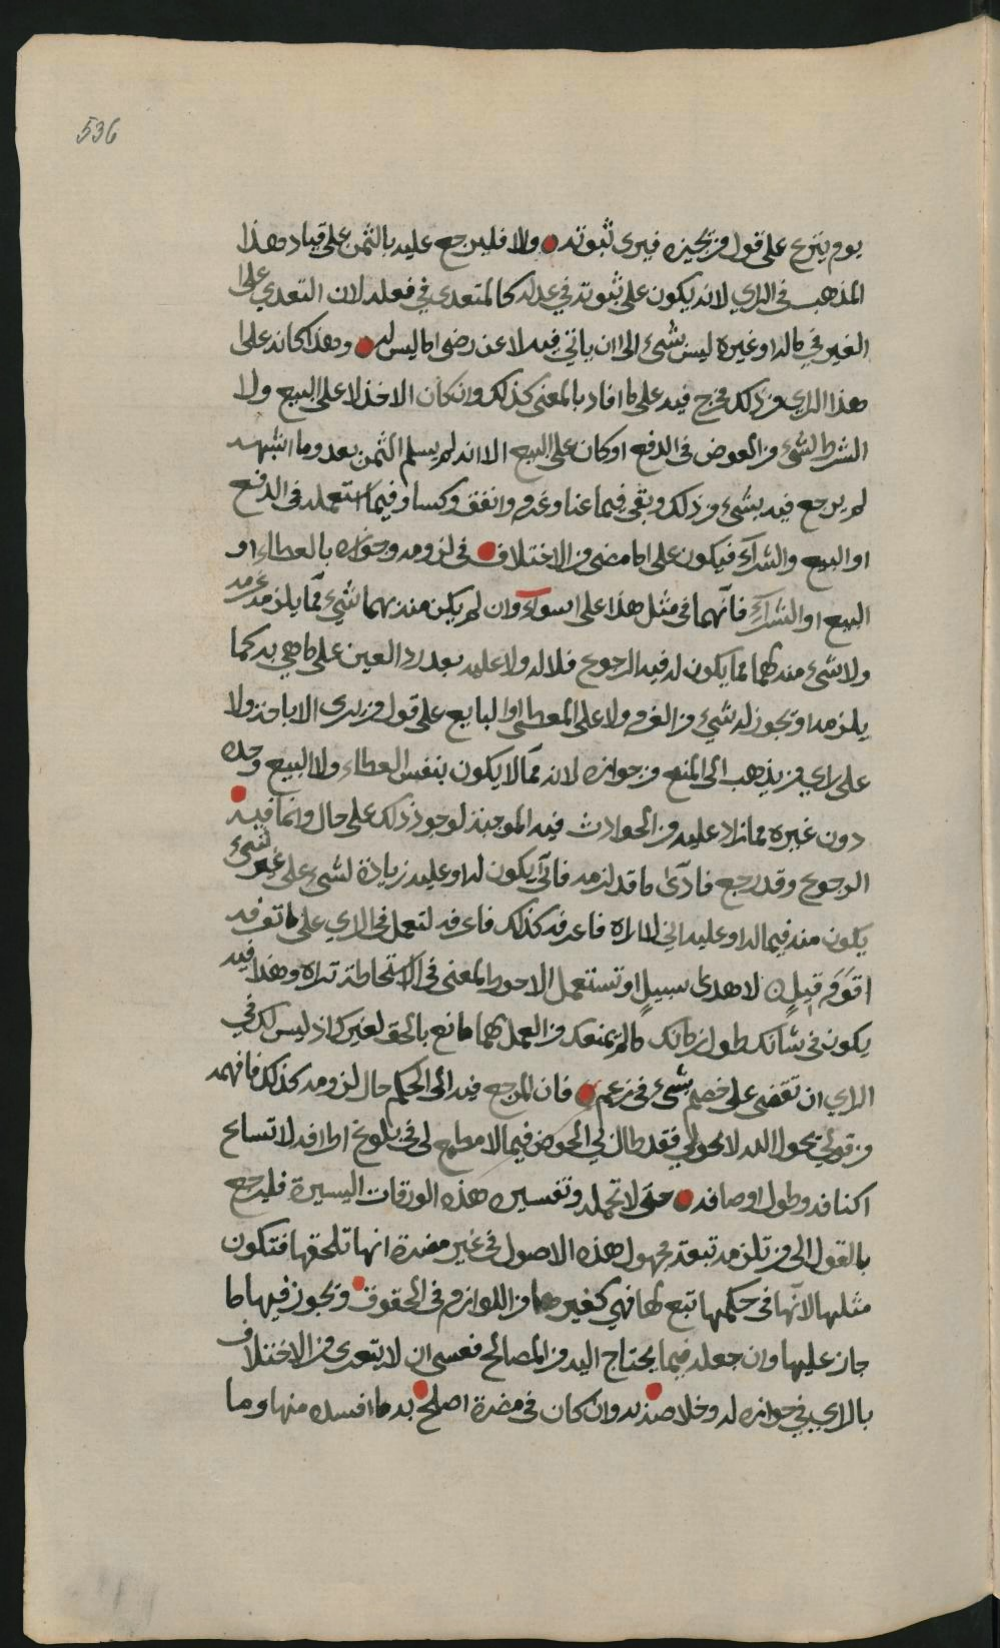 536
يوم ينزع على قول من يجيزه فيرى ثبوته والا فليرجع عليه بالثمن على قياد هذا
المذهب في الراي لانه يكون على ثبوته في عدله كالمتعدي في فعله لان التعدي على
الغير في ماله او غيره ليس بشيء الى ان ياتي فيه لا عن رضى ما ليس له وهذا كانه على
هذا الراي من ذلك مخرج فيه على ما افاد بالمعنى كذلك وان كان الاخذ لا على البيع ولا
الشرط لشيء من العوض في الدفع او كان على البيع الا انه لم يسلم الثمن بعد وما اشبهه
لم يرجع فيه بشيء من ذلك وبقي فيما عنا وغرم وانفق وكسا وفيما استعمله في الدفع
او البيع والشراء فيكون على ما مضى من الاختلاف في لزومه وجوازه بالعطاء او
البيع او الشراء فانهما في مثل هذا على سواء وان لم يكن منه بهما لشيء مما يلزمه غرمه
ولا شيء منه لهما مما يكون له فيه الرجوع فلا له ولا عليه بعد رد العين على ما هي به كما
يلزمه او يجوز له شيء من الغرم ولا على المعطي او البايع على قول من يرى الاباحة ولا
على راي من يذهب الى المنع من جوازه لانه مما لا يكون بنفس العطاء ولا البيع وحده
دون غيره مما زاد عليه من الحوادث فيه الموجبة لوجوذ ذلك على حال وانما فيه
الرجوع وقد رجع فادّى ما قد لزمه فانّى يكون له او عليه زيادة لشيء على غير شيء
يكون منه فيما له او عليه اني لا اراه فاعرفه كذلك فاعرفه لتعمل في الراي على ما تعرفه
اقوم قيلٍ لاهدى سبيلٍ او تستعمل الاحوط المعنى في الاستحاطة تراه وهذا فيه
يكون في شانك طول زمانك ما لم يمنعك من العمل بهما مانع بالحق لغيرك اذ ليس لك في
الراي ان تقضي على خصم بشيء في زعم فان المرجع فيه الى الحكم حال لزومه كذلك فافهمه
من قولي بحول الله لا بحولي فقد طال لي الخوض فيما لا مطمع لي في بلوغ اطرافه لاتساع
اكنافه وطول اوصافه حتى لا تحمله وتفسيره هذه الورقات اليسيرة فليرجع
بالقول الى من تلزمه تبعة مجهول هذه الاصول في غير مضرة انها تلحقها فتكون
مثلها لانها في حكمها تبع لها فهي كغيرها من اللوازم في الحقوق ويجوز فيها ما
جاز عليها وان جعله فيما يحتاج اليه من المصالح فعسى ان لا يتعدى من الاختلاف
بالراي في جوازه له وخلاصه به وان كان في مضرة اصلح به ما افسده منها وما